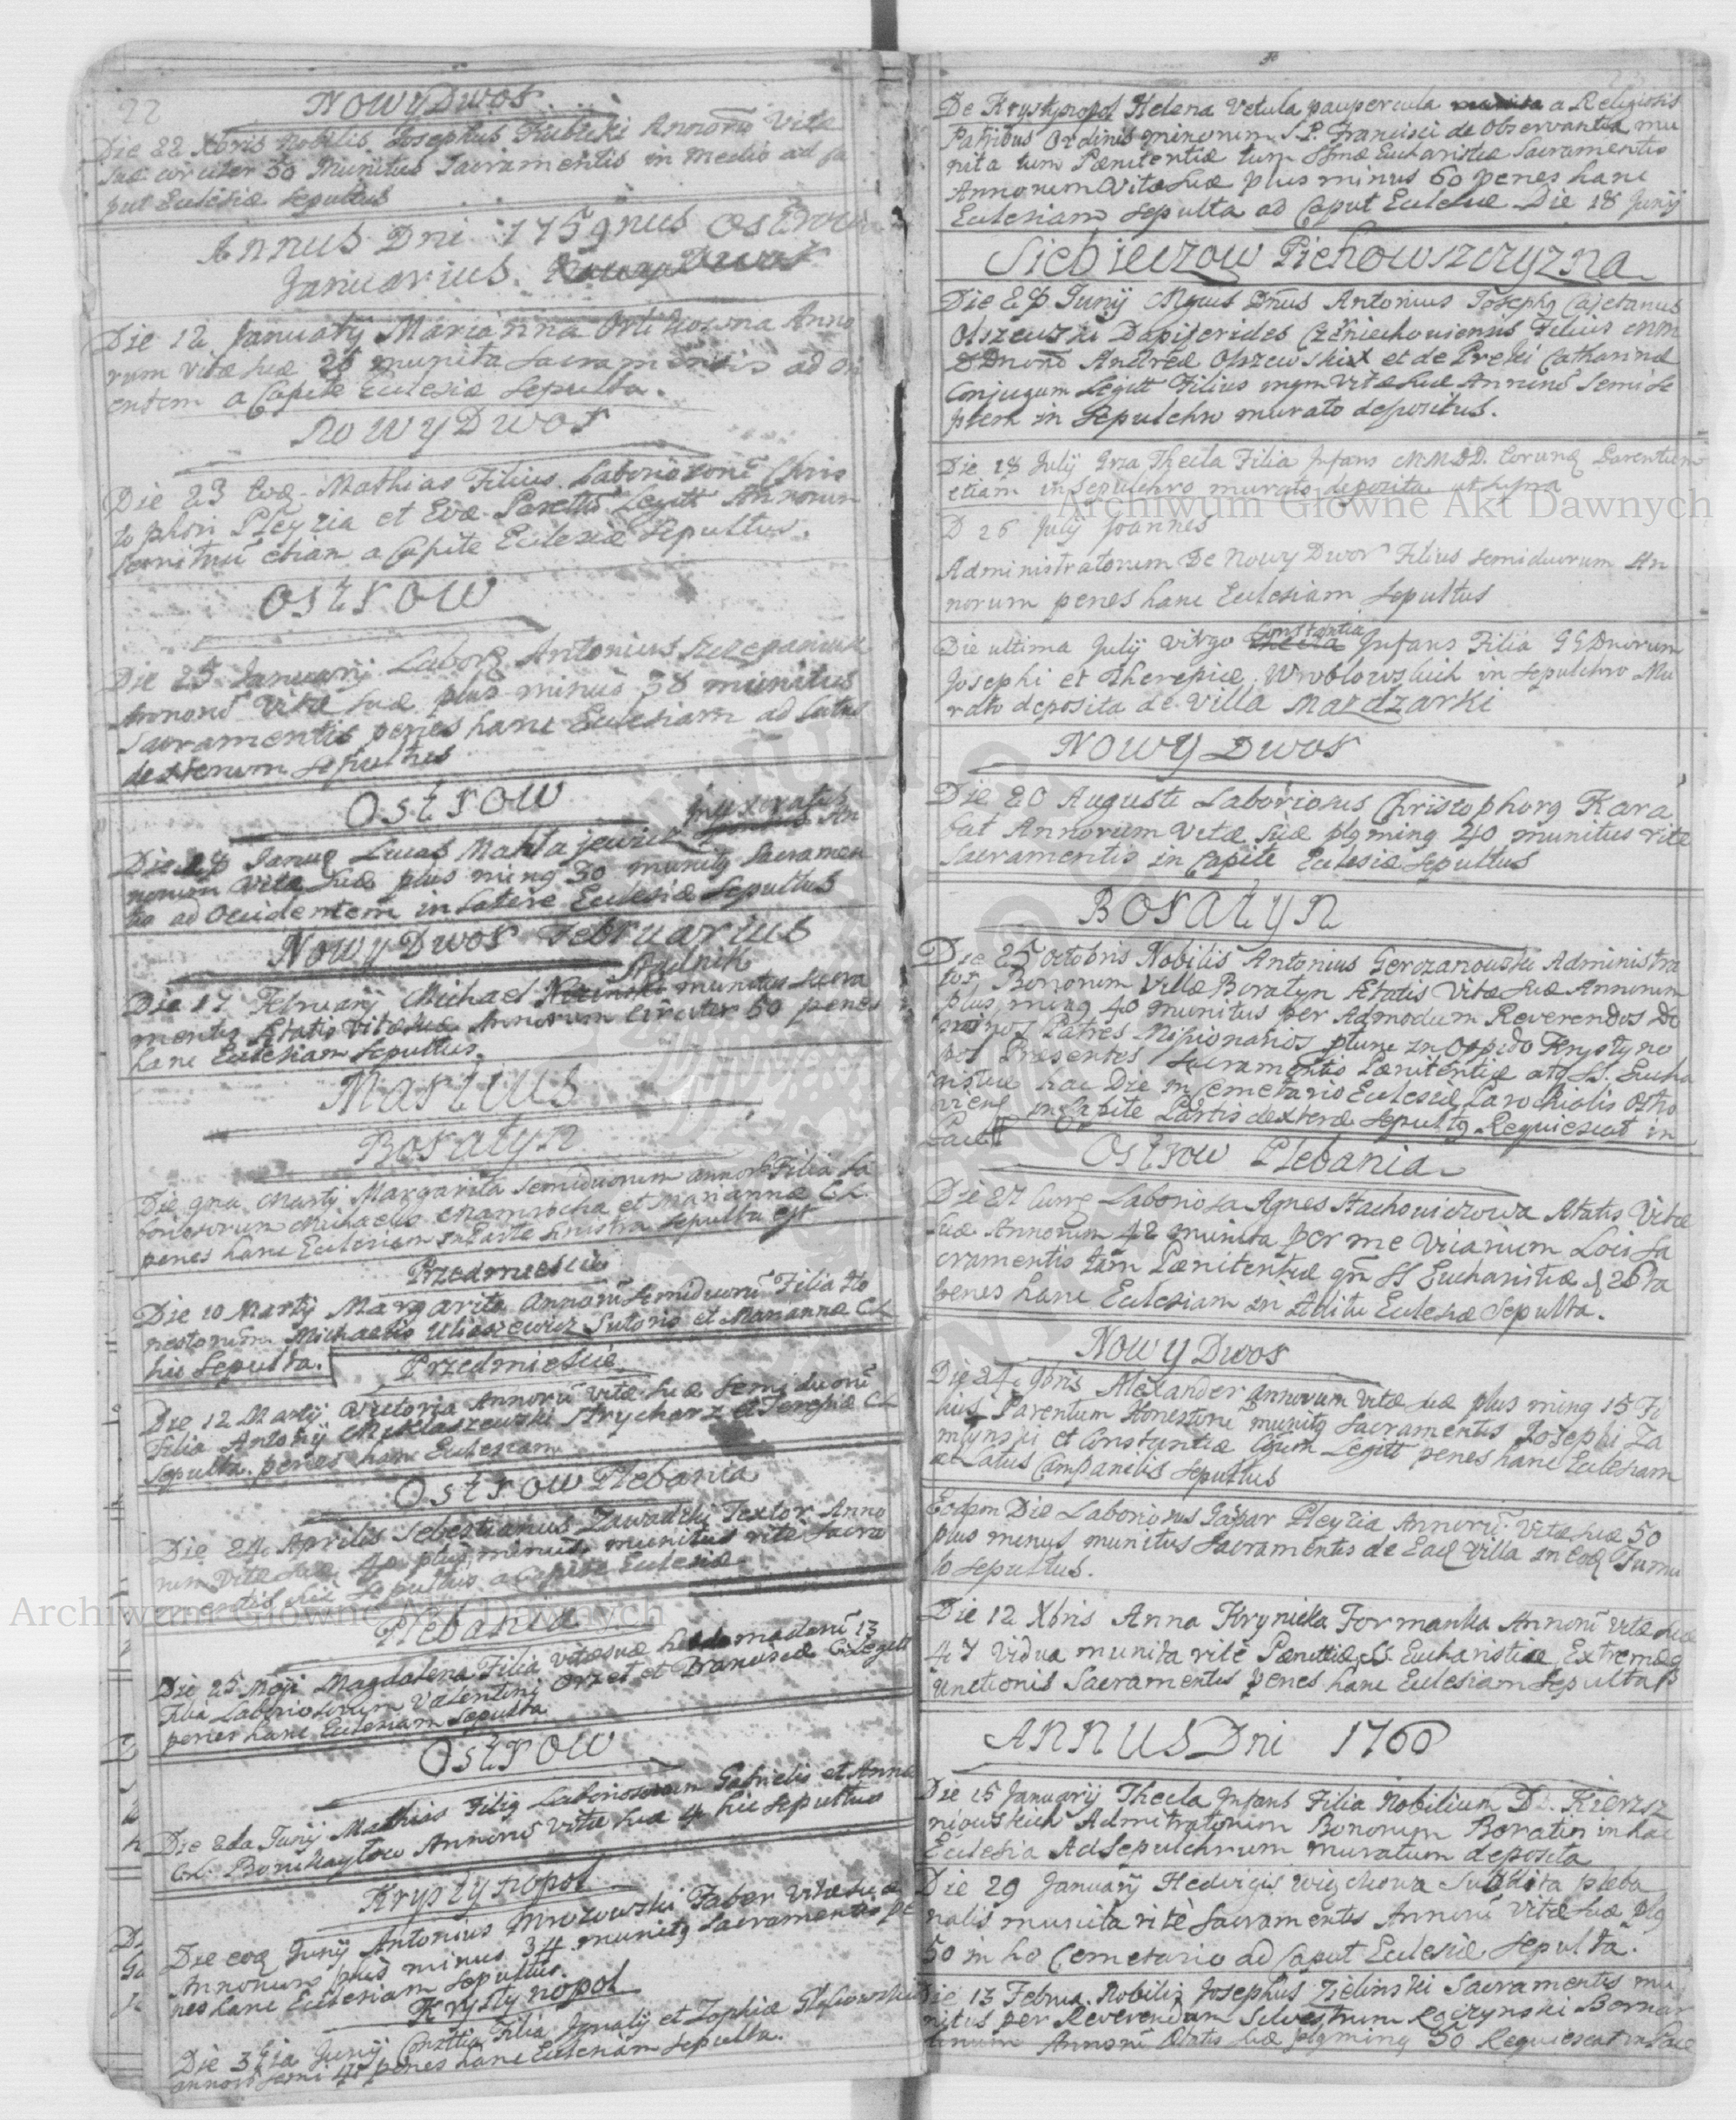 22
Nowy Dwor
Die 22 Xbris Nobilis Josephus Kubicki Annorum Vitæ
Suæ circiter 50 Munitus Sacramentis in medio ad Ca
put Eclesiæ Sepultus
Annus Dni 1759nus Ostrow
Januarius
Die 12 Januarij Marianna Anno
rum Vitæ Suæ 26 munita Sacramentis ad Ori
entem a Capite Eclesiæ Sepulta.
Nowy Dwor
Die 23 Ead. Mathias Filius Laboriosorū Chris
tophori Pleyzia et Evæ Parentū Legitt Annorum
etiam a Capite Eclesiæ Sepultus.
Ostrow
Die 25 Januarij Labors Antonius Szczepaniuk
Annorū Vitæ Suæ plus minus 38 munitus
Sacramentis penes hanc Eclesiam ad latus
dexterum Sepultus
Ostrow
Die 28 Januar Lucas Mahtajewicz An
norum Vitæ Suæ plus ming 30 munitg Sacramen
tis ad Occidentem in latere Eclesiæ Sepultus
Nowy Dwor Februarius
Studnik
Die 17 Februarij Michael munitus Sacra
mentis Ætatis Vitæ Suæ Annorum circiter 50 penes
hanc Eclesiam Sepultus.
Martius
Boratyn
Die 9na Martij Margarita Semiduorum annorū Filia La
boriosorum Michaelis Mamrocha et Mariannæ CL.
penes hanc Eclesiam in Parte Sinistra Sepulta est
Przedmiescie
Die 10 Martij Margarita Annorū Semiduorū Filia Ho
nestorum Michaelis Uliaszewicz Sutoris et Mariannæ CL
hic Sepulta.
Przedmiescie
Die 12 Martij Victoria Annorū Vitæ Suæ Semiduorū
Filia Antonij Mikolaszewski Strycharz et Teresiæ CL
Sepulta penes hanc Eclesiam
Ostrow Plebania
Die 24 Aprilis Sebestianus Zawadzki Textor Anno
rum Vitæ Suæ 40 plus minus munitus rite Sacra
mentis hic Sepultus a Capite Eclesiæ
Plebania
Die 25 Maji Magdalena Filia vitæ suæ hebdomadarū 13
Filia Laboriosorum Valentini Orzet et Franciscæ C Legitt
penes hanc Eclesiam Sepulta
Ostrow
Die 2da Junij Mathias Filig Laboriosorum Gabrielis et Annæ
CL. Bonikaytow Annorū Vitæ Suæ 4 hic Sepultus
Krystynopol
Die eoq Junij Antonius Mrozowski Faber Vitæ Suæ
Annorum plus minus 34 munitg Sacramentis pe
nes hanc Eclesiam Sepultus.
Krystynopol
Die 3tia Junij Filia Ignatij et Zophiæ
annorū semi penes hanc Eclesiam Sepulta.
De Krystynopol Helena Vetula paupercula a Religiosis
Patribus Ordinis minorum S. P. Francisci de Observantia mu
nita tum Pænitentiæ tum SSmæ Eucharistiæ Sacramentis
Annorum Vitæ Suæ plus minus 60 penes hanc
Eclesiam Sepulta ad Caput Eclesiæ Die 18 Junij
Siebieczow Piehowszczyzna
Die 28 Junij Mgnus Dnus Antonius Josephg Cajetanus
Olszewski Dapiferides Czerniechoviensis Filius MM
DDnorū Andreæ Olszewskix et de Catharinæ
Conjugum Legitt Filius Vitæ Suæ Annorū Semi Se
ptem in Sepulchro murato depositus.
Die 18 Julij Thecla Filia Infans MMDD. Eorundē Parentum
etiam in Sepulchro murato deposita ut Supra
D 26 Julij Joannes
Administratorum De Nowy Dwor Filius Semiduorum An
norum penes hanc Eclesiam Sepultus
Constantia
Die ultima Julij Virgo Thecla Infans Filia GGDnorum
Josephi et Theresiæ Wroblowskich in Sepulchro Mu
rato deposita de Villa Madzarki
Nowy Dwor
Die 20 Augusti Laboriosus Christophorg Kara
but Annorum Vitæ Suæ plg ming 40 munitus rite
Sacramentis in Capite Eclesiæ Sepultus
Boratyn
Die 25 Octobris Nobilis Antonius Gerozanowski Administra
tor Bonorum Villæ Boratyn Ætatis Vitæ Suæ Annorum
plus ming 40 munitus per Admodum Reverendos Do
minos Patres Missionarios plunc in Oppido Krystyno
pol Præsentes Sacramentis Pænitentiæ atq SS. Eucha
ristiæ hac Die in Cemetario Eclesiæ Parochialis Ostro
viens in Capite Partis dexteræ Sepultg Requiescat in
Pace
Ostrow Plebania
Die 27 Laboriosa Agnes Stachowiczowa Ætatis Vitæ
Suæ Annorum 42 munita per me Vicarium Loci Sa
cramentis tam Pænitentiæ qm SS Eucharistiæ
penes hanc Eclesiam in Aditu Eclesiæ Sepulta.
Nowy Dwor
Die 24 9bris Alexander Annorum Vitæ Suæ plus ming 15 Fi
lius Parentum Honestorū munitg Sacramentis Josephi Za
mlynski et Constantiæ Legitt penes hanc Eclesiam
ad Latus Campanilis Sepultus
Eodem Die Laboriosus Gaspar Pleyzia Annorū Vitæ Suæ 50
plus minus munitus Sacramentis de Eadē Villa in Eodē Tumu
lo Sepultus.
Die 12 Xbris Anna Krynicka Formanka Annorū Vitæ Suæ
47 Vidua munita ritè Pænittiæ SS Eucharistiæ Extremæq
Unctionis Sacramentis penes hanc Eclesiam Sepulta
Annus Dni 1760
Die 15 Januarij Thecla Infans Filia Nobilium DD. Kierzsz
niowskich Admitratorum Bonorum Boratin in hac
Eclesia Ad Sepulchrum muratum deposita
Die 29 Januarij Hedvigis Wigchowa Subdita pleba
nalis munita ritè Sacramentis Annorū Vitæ Suæ plg
50 in ho Cemetario ad Caput Eclesiæ Sepulta.
Die 13 Februa. Nobilis Josephus Zielinski Sacramentis mu
nitus per Reverendum Silvestrum Rgczynski Bernar
dinum Annorū Ætatis Suæ plg ming 50 Requiescat in Pace
Archiwum Główne Akt Dawnych
Archiwum Główne Akt Dawnych